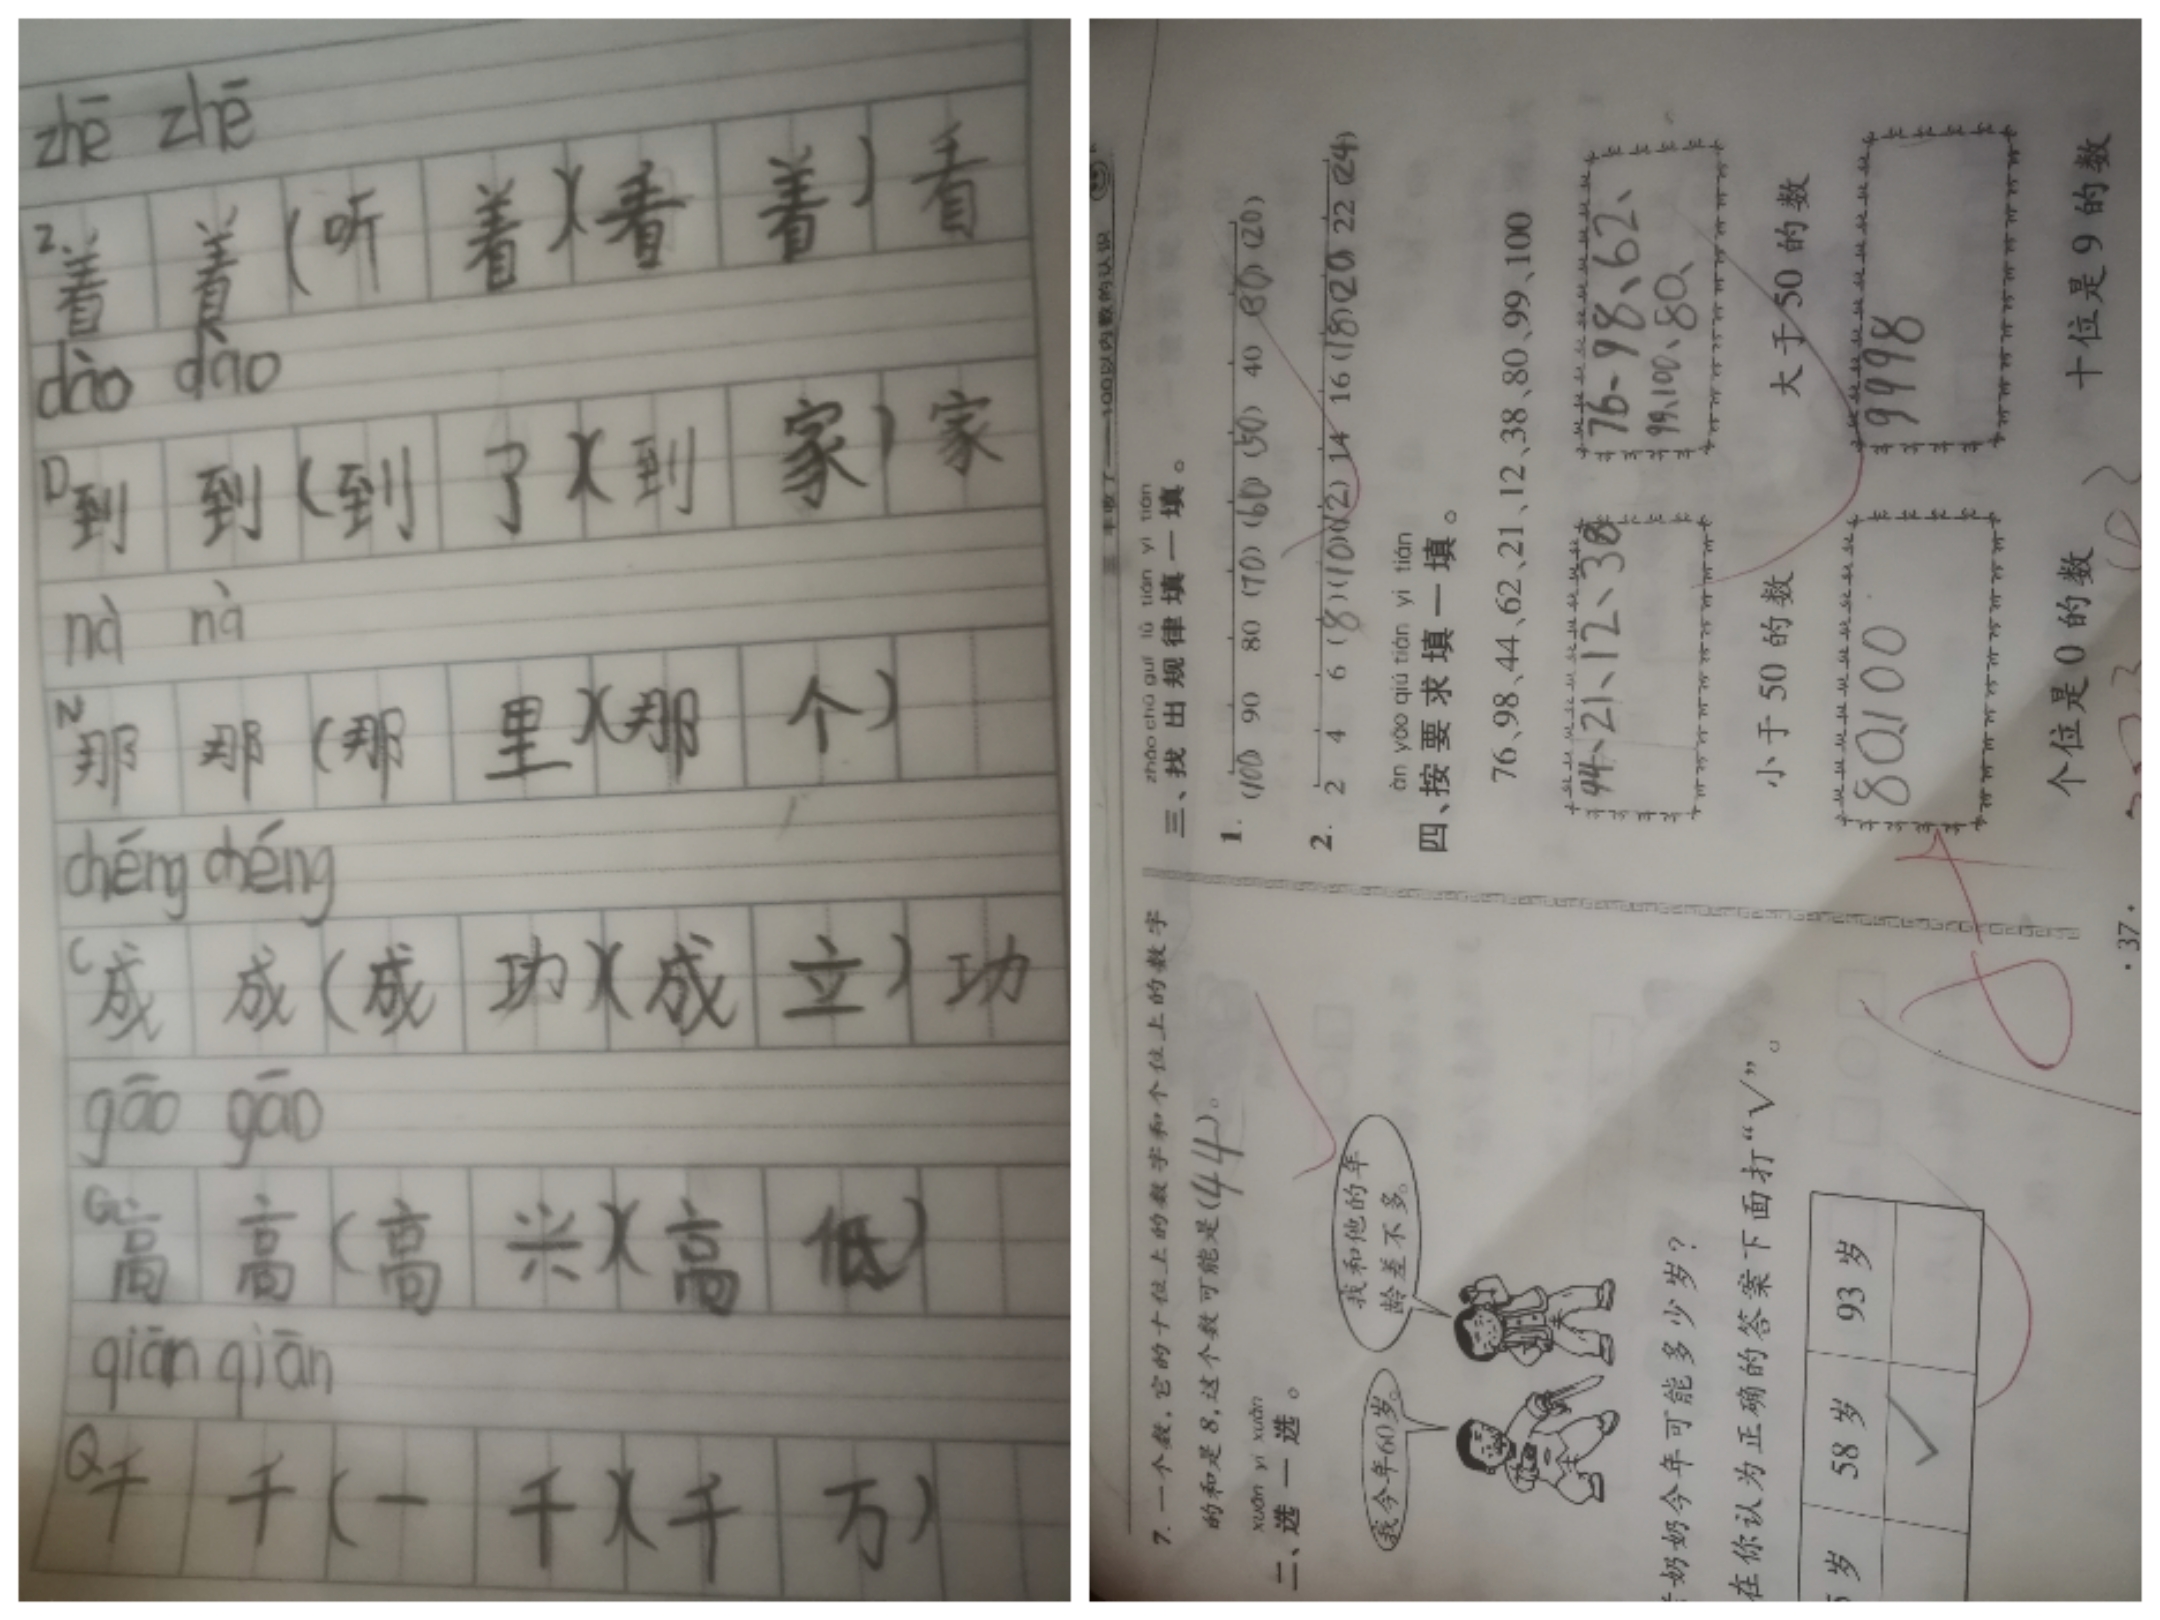 zhē zhē
Z
着 着 (听 着)(看 着) 看
dào dào
D
到 到 (到 了)(到 家) 家
nà nà
N
那 那 (那 里)(那 个)
chéng chéng
C
成 成 (成 功)(成 立) 功
gāo gāo
G
高 高 (高 兴)(高 低)
qiān qiān
Q
千 千 (一 千)(千 万)
7. 一个数,它的十位上的数字和个位上的数字
的和是8,这个数可能是(44)。
xuǎn yi xuǎn
二、选一选。
我今年60岁。
我和他的年
龄差不多。
奶奶今年可能多少岁?
在你认为正确的答案下面打“√”。
岁 58岁 93岁
√
丰收了——100以内数的认识
zhǎo chū guī lǜ tián yi tián
三、找出规律填一填。
1. (100) 90 80 (70) (60) (50) 40 (30) (20)
2. 2 4 6 (8) (10) (12) 14 16 (18) (20) 22 (24)
àn yāo qiú tián yi tián
四、按要求填一填。
76、98、44、62、21、12、38、80、99、100
44、21、12、38
76、98、62、
99、100、80、
小于50的数
大于50的数
80、100
99 98
个位是0的数
十位是9的数
·37·